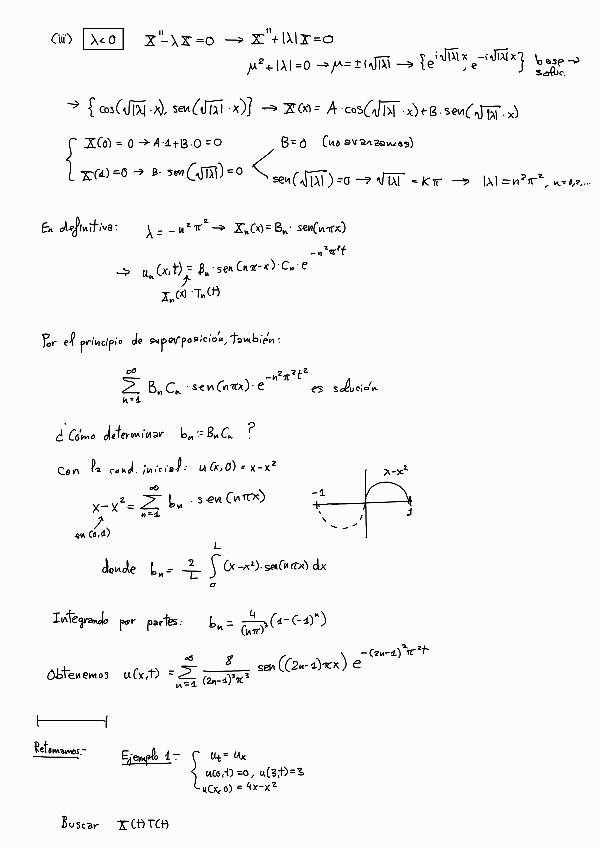 (iii) λ<0 X''-λX=0 → X''+|λ|X=0
μ²+|λ|=0 → μ=±i√|λ| → {e^{i√|λ|x}, e^{-i√|λ|x}} base → soluc.
→ {cos(√|λ|·x), sen(√|λ|·x)} → X(x) = A·cos(√|λ|·x)+B·sen(√|λ|·x)
X(0)=0 → A·1+B·0=0 B=0 (no avanzamos)
X(1)=0 → B·sen(√|λ|)=0 sen(√|λ|)=0 → √|λ| = Kπ → |λ|=n²π², n=0,2,...
En definitiva: λ=-n²π² → Xₙ(x)=Bₙ·sen(nπx)
→ uₙ(x,t) = Bₙ·sen(nπ-x)·Cₙ·e^{-n²π²t}
Xₙ(x)·Tₙ(t)
Por el principio de superposición, también:
∑_{n=1}^{∞} BₙCₙ·sen(nπx)·e^{-n²π²t²} es solución
¿Cómo determinar bₙ=BₙCₙ ?
Con la cond. inicial: u(x,0)=x-x²
x-x² = ∑_{n=1}^{∞} bₙ·sen(nπx)
en (0,1)
-1 x-x² 1
donde bₙ= 2/L ∫_0^L (x-x²)·sen(nπx) dx
Integrando por partes: bₙ = 4/(nπ)³ (1-(-1)ⁿ)
Obtenemos u(x,t) = ∑_{n=1}^{∞} 8/((2n-1)³π³) sen((2n-1)πx) e^{-(2n-1)²π²t}
Retomamos.- Ejemplo 1.- uₜ = uₓ
u(0,t)=0, u(3,t)=3
u(x,0) = 4x-x²
Buscar X(t)T(t)